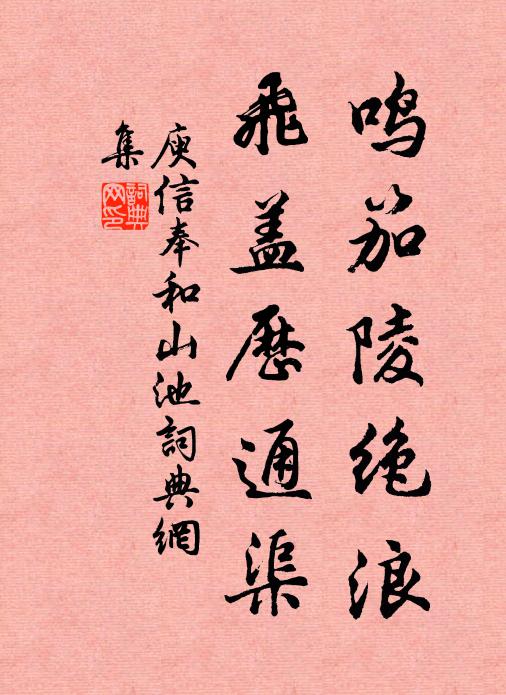 鸣笳陵绝浪
飞盖历通渠
庾信奉和山池詞典網
集
詞典
网印